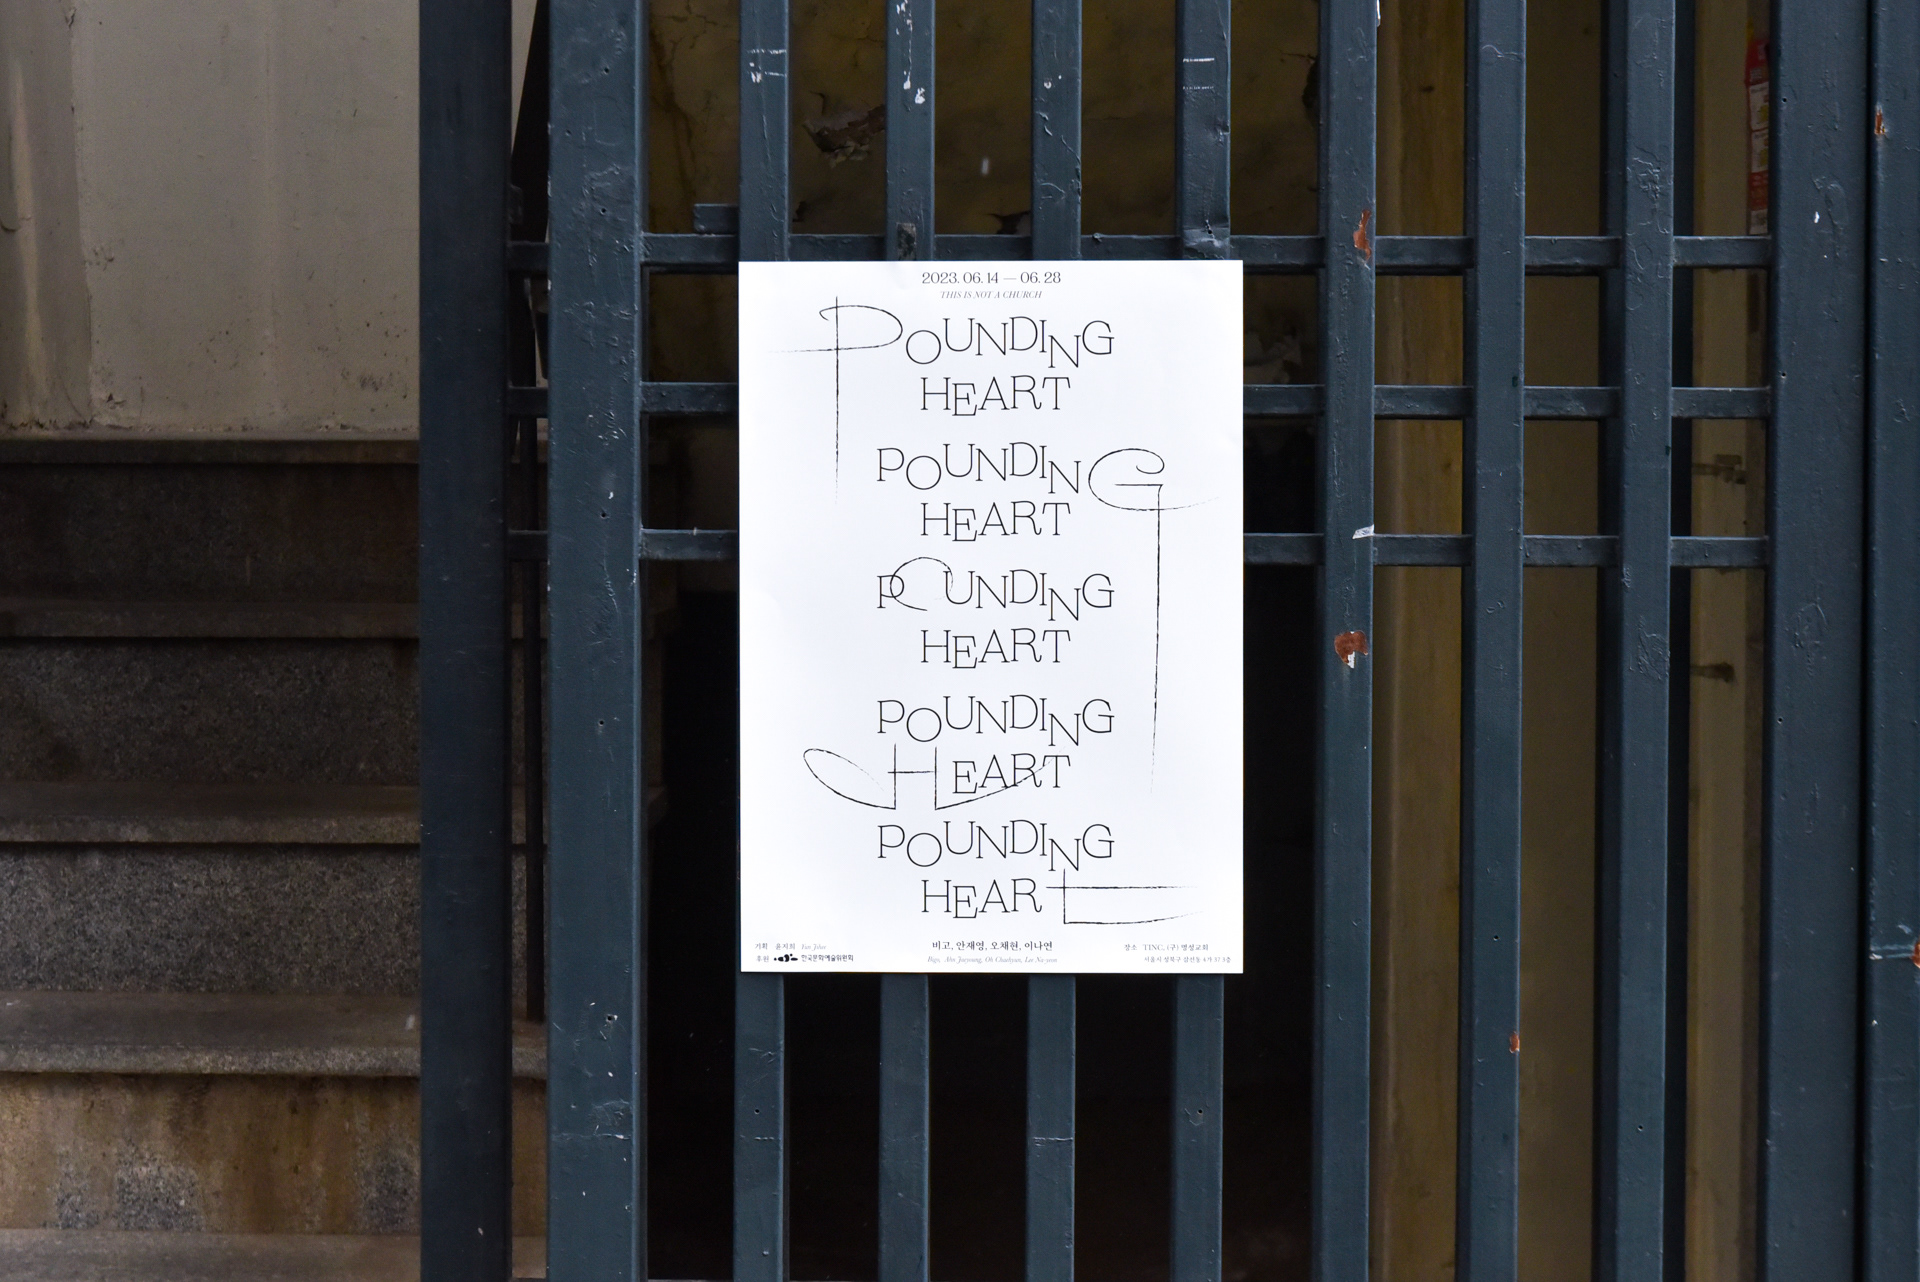 2023. 06. 14 — 06. 28
THIS IS NOT A CHURCH
POUNDING
HEART
POUNDING
HEART
POUNDING
HEART
POUNDING
HEART
POUNDING
HEART
기획 윤지희 Yun Jihee
후원 한국문화예술위원회
비고, 안재영, 오채현, 이나연
Bigo, Ahn Jaeyoung, Oh Chaehyun, Lee Na-yeon
장소 TINC, (구) 명성교회
서울시 성북구 삼선동 4가 37 3층